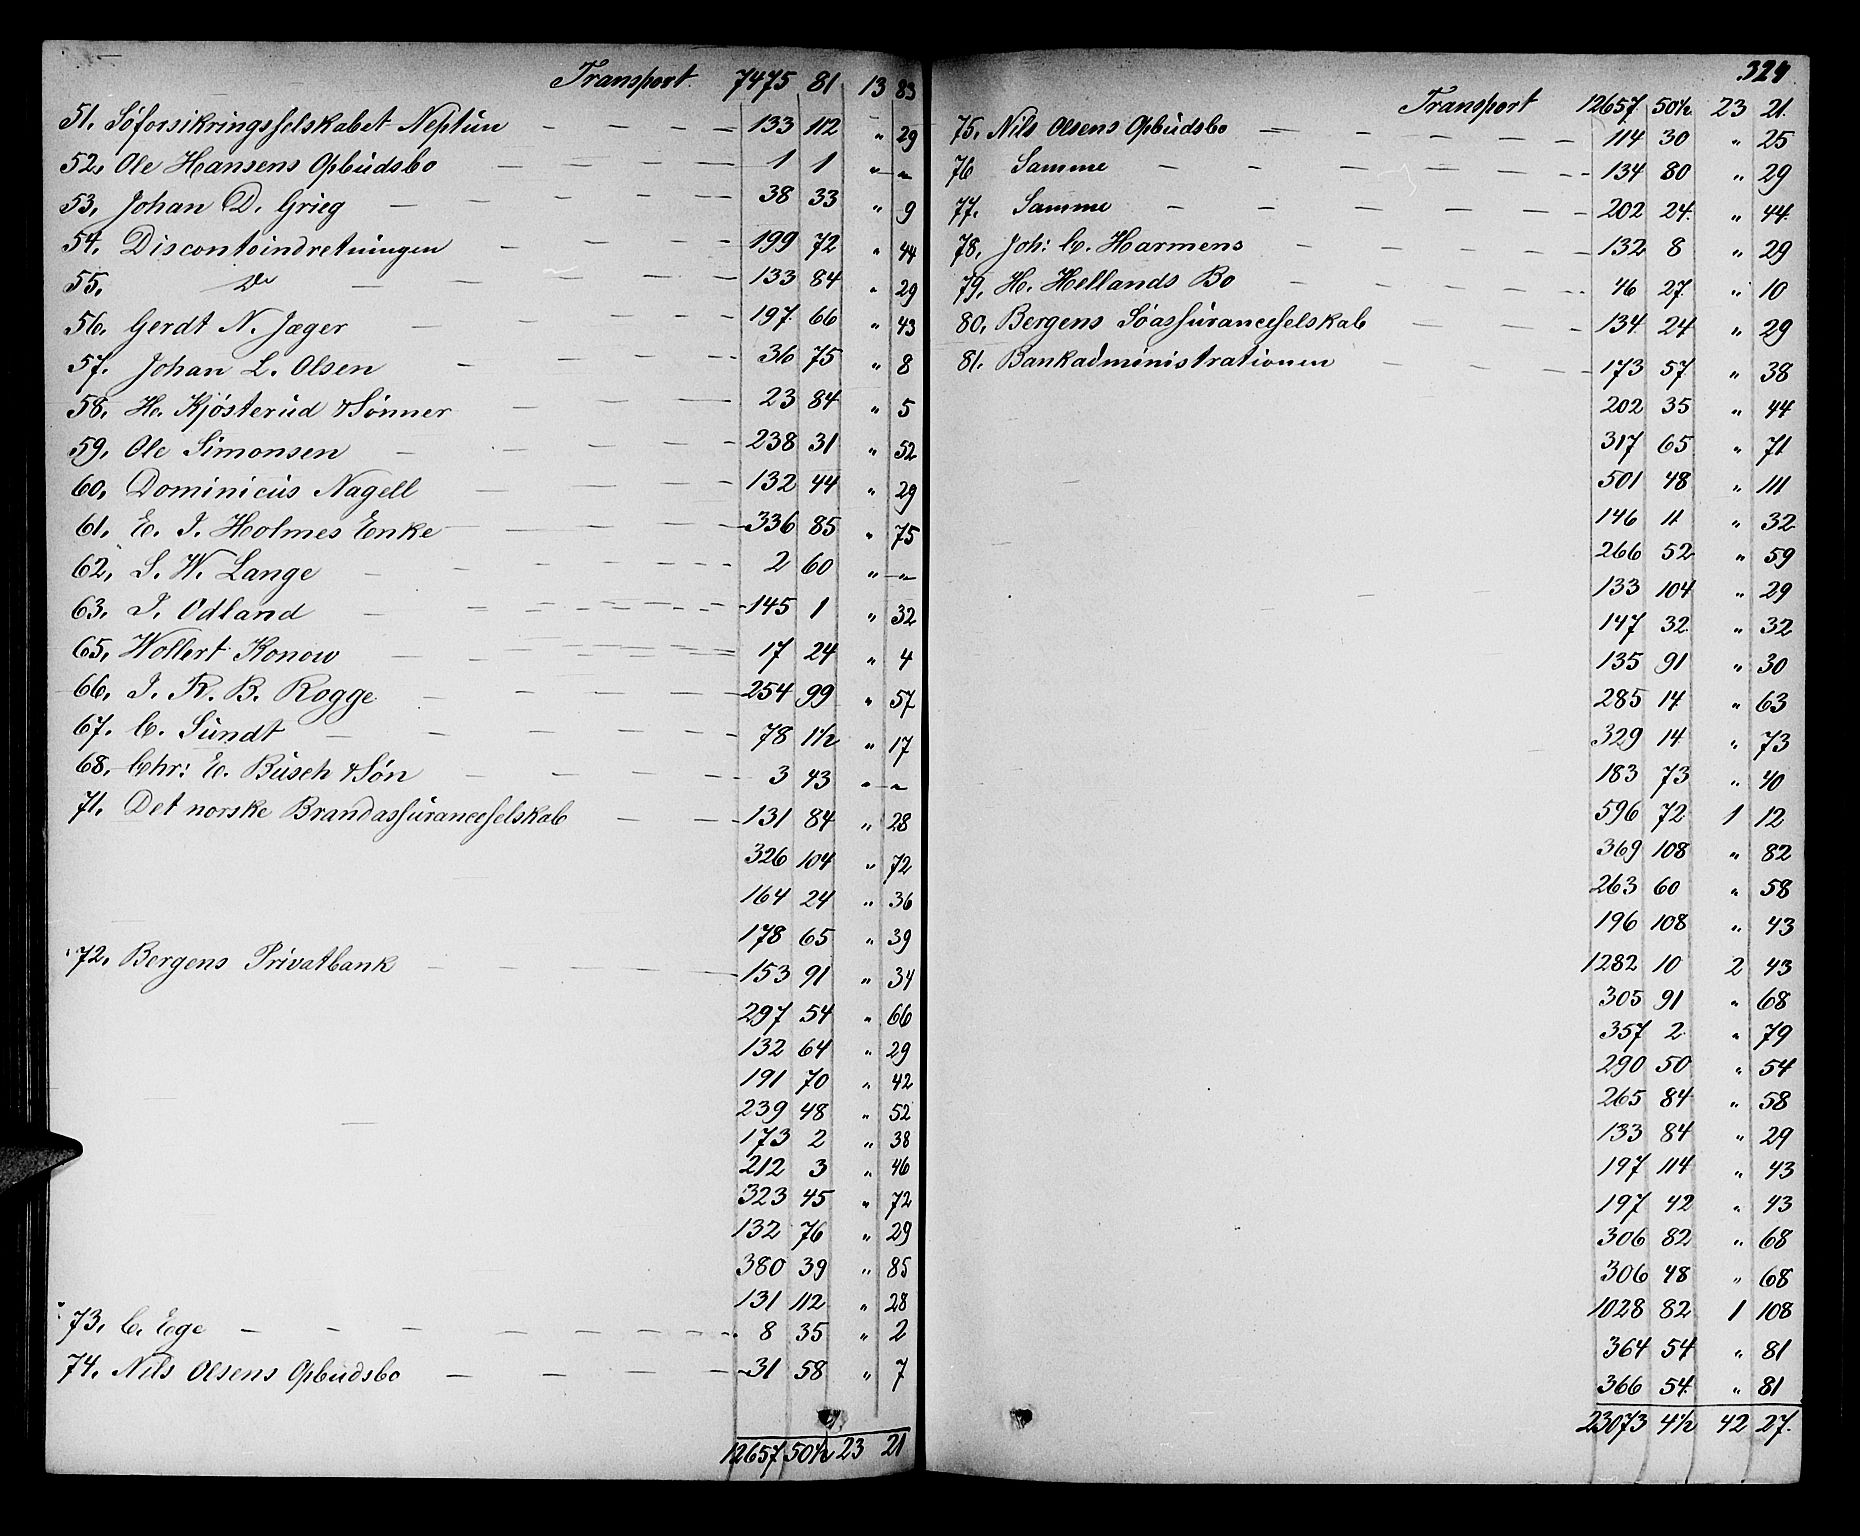 Transport 7475 81 13 83
51. Söforsikringsselskabet Neptun — — — 133 112 " 29
52. Ole Hansens Opbudsbo — — — 1 1 " "
53. Johan D. Grieg — — — 38 33 " 9
54. Discontoindretningen — — — 199 72 " 44
55. Do — — — 133 84 " 29
56. Gerdt N. Jæger — — — 197 66 " 43
57. Johan L. Olsen — — — 36 75 " 8
58. H. Kjösterud & Sönner — — — 23 84 " 5
59. Ole Simonsen — — — 238 31 " 52
60. Dominicus Nagell — — — 132 44 " 29
61. E. J. Holmes Enke — — — 336 85 " 75
62. S. W. Lange — — — 2 60 " "
63. J. Odland — — — 145 1 " 32
65. Wollert Konow — — — 17 24 " 4
66. J. R. B. Rogge — — — 254 99 " 57
67. C. Sundt — — — 78 1½ " 17
68. Chr: E. Busch & Sön — — — 3 43 " "
71. Det norske Brandassuranceselskab — — 131 84 " 28
326 104 " 72
164 24 " 36
178 65 " 39
72. Bergens Privatbank — — — 153 91 " 34
297 54 " 66
132 64 " 29
191 70 " 42
239 48 " 52
173 2 " 38
212 3 " 46
323 45 " 72
132 76 " 29
380 39 " 85
131 112 " 28
73. C. Ege — — — 8 35 " 2
74. Nils Olsens Opbudsbo — — — 31 58 " 7
12657 50½ 23 21
324
Transport 12657 50½ 23 21.
75. Nils Olsens Opbudsbo — — — 114 30 " 25
76 Samme — — — 134 80 " 29
77. Samme — — — 202 24 " 44
78. Joh: C. Harmens — — — 132 8 " 29
79. H. Hellands Bo — — — 46 27 " 10
80. Bergens Söassuranceselskab — — — 134 24 " 29
81. Bankadministrationen — — — 173 57 " 38
202 35 " 44
317 65 " 71
501 48 " 111
146 11 " 32
266 52 " 59
133 104 " 29
147 32 " 32
135 91 " 30
285 14 " 63
329 14 " 73
183 73 " 40
596 72 1 12
369 108 " 82
263 60 " 58
196 108 " 43
1282 10 2 43
305 91 " 68
357 2 " 79
290 50 " 54
265 84 " 58
133 84 " 29
197 114 " 43
197 42 " 43
306 82 " 68
306 48 " 68
1028 82 1 108
364 54 " 81
366 54 " 81
23073 4½ 42 27.